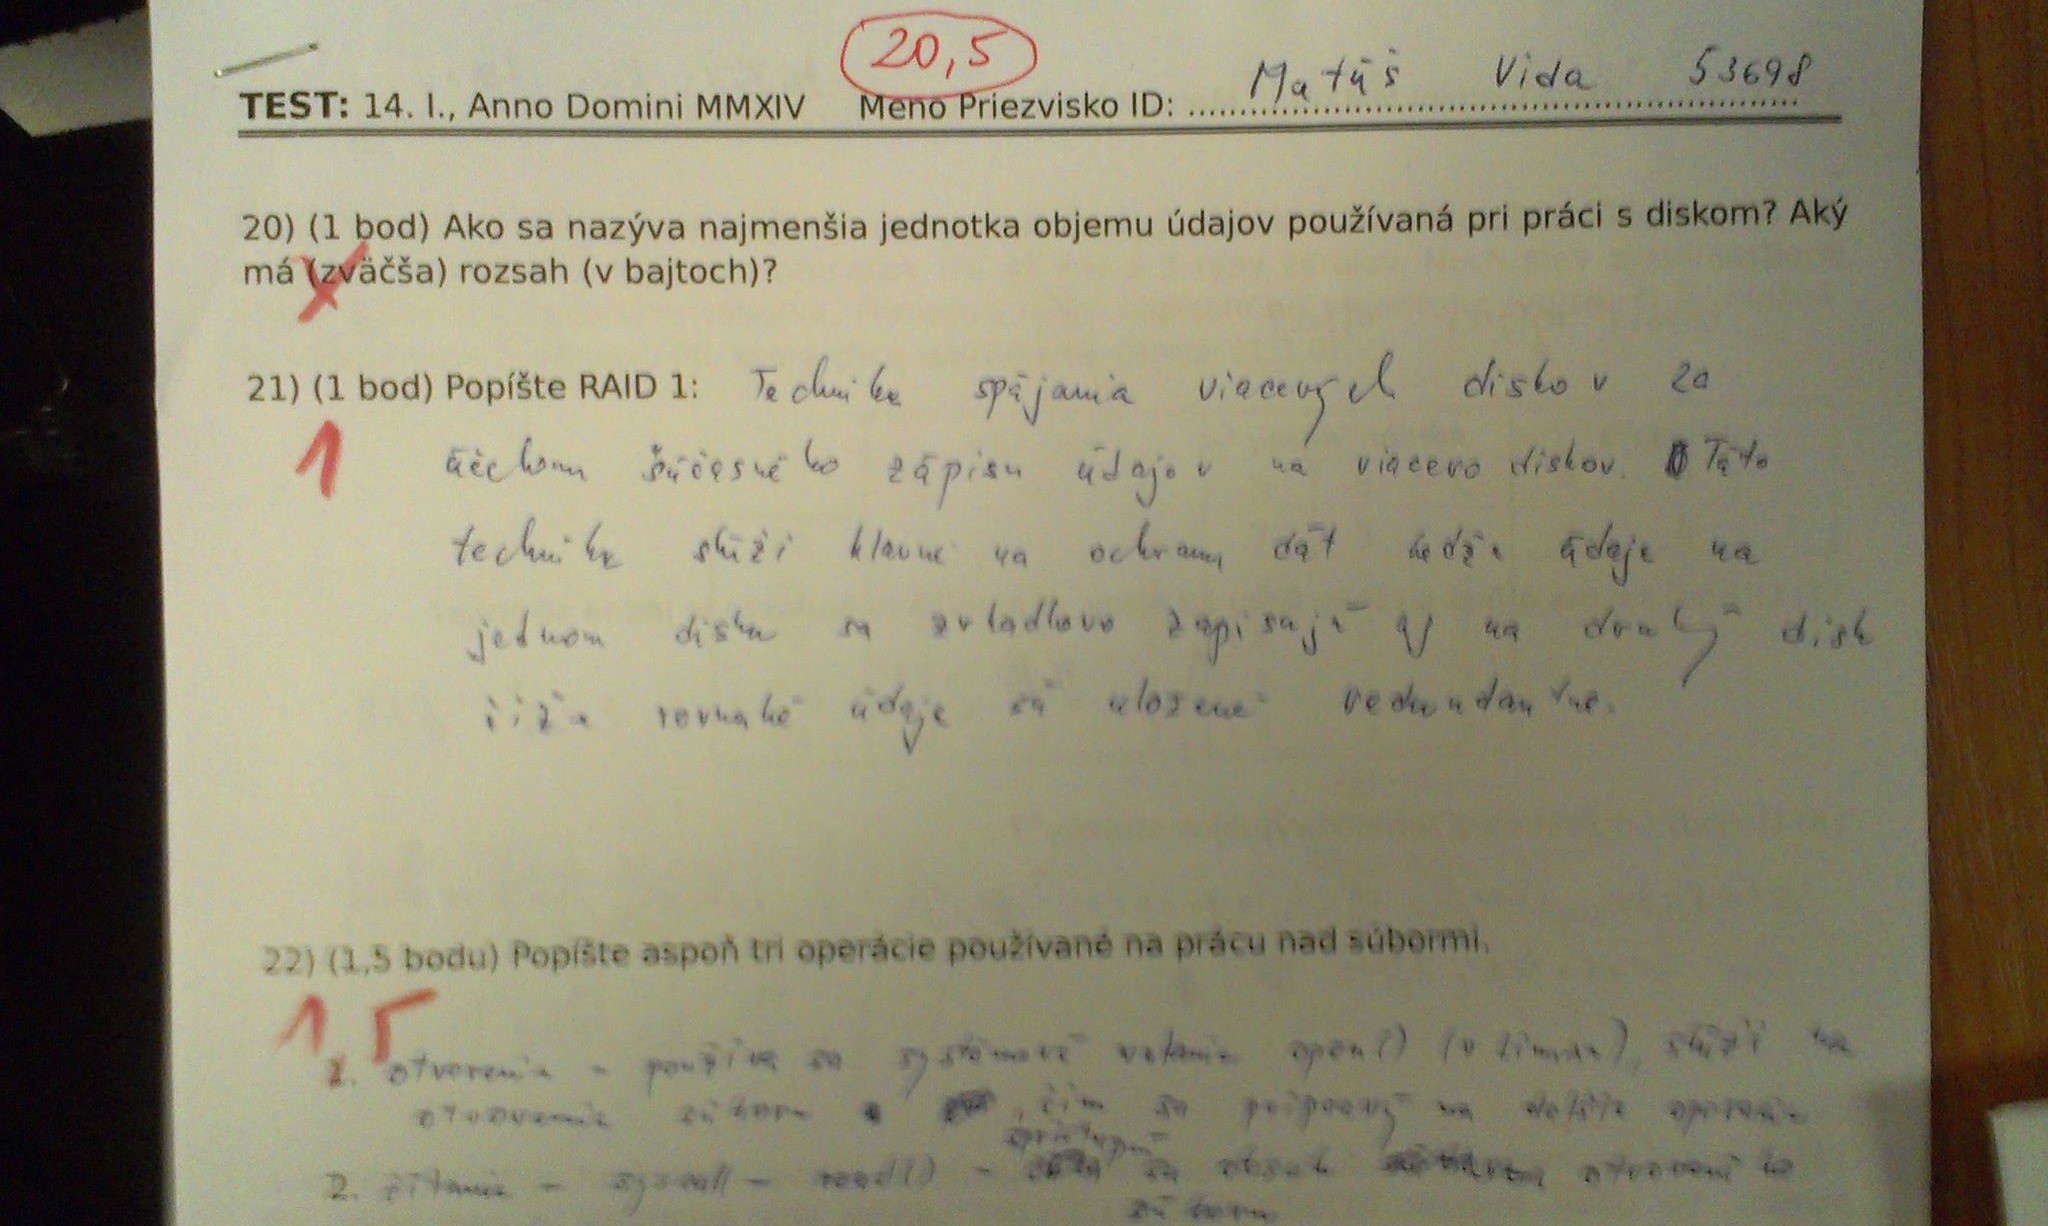 20,5
TEST: 14. I., Anno Domini MMXIV Meno Priezvisko ID: Matúš Vida 53698
20) (1 bod) Ako sa nazýva najmenšia jednotka objemu údajov používaná pri práci s diskom? Aký
má (zväčša) rozsah (v bajtoch)?
21) (1 bod) Popíšte RAID 1: Technika spájania viacerých diskov za
1 účelom súčasného zápisu údajov na viacero diskov. Táto
technika slúži hlavne na ochranu dát kedže údaje na
jednom disku sa zrkadlovo zapisujú aj na druhý disk
čiže rovnaké údaje sú uložené redundantne.
22) (1,5 bodu) Popíšte aspoň tri operácie používané na prácu nad súbormi.
1 5
1. otvorenie - používa sa systémové volanie open() (v linuxe), slúži na
otvorenie súboru, čím sa pripraví na ďalšie operácie
2. čítanie - syscall - read() - sprístupní sa obsah otvoreného
súboru